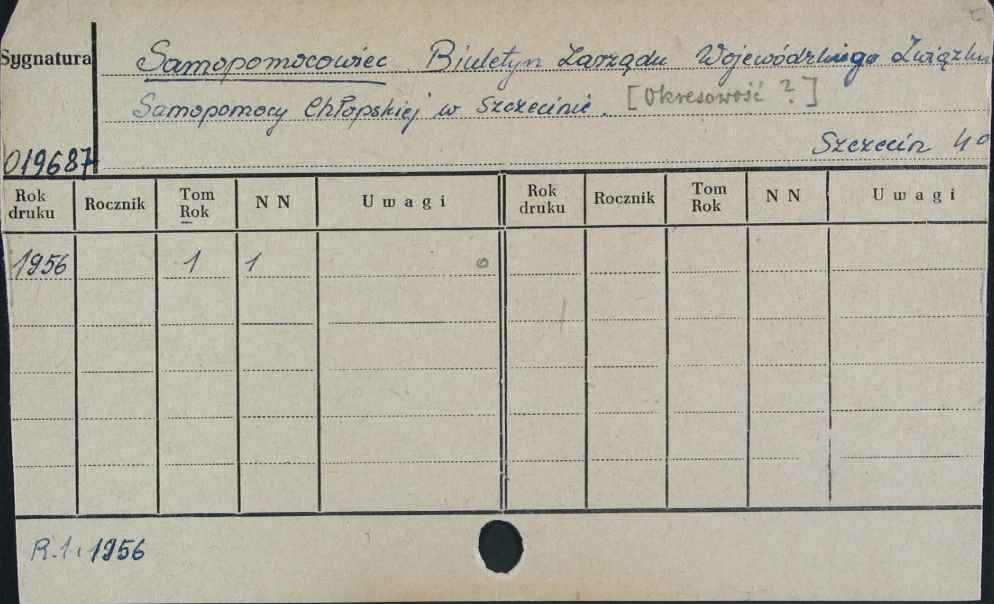 Sygnatura
Samopomocowiec. Biuletyn Zarządu Wojewódzkiego Związku
Samopomocy Chłopskiej w Szczecinie. [Okresowość ?]
Szczecin 4°
019687
Rok druku Rocznik Tom Rok NN Uwagi Rok druku Rocznik Tom Rok NN Uwagi
1956 1 1 o
R.1:1956